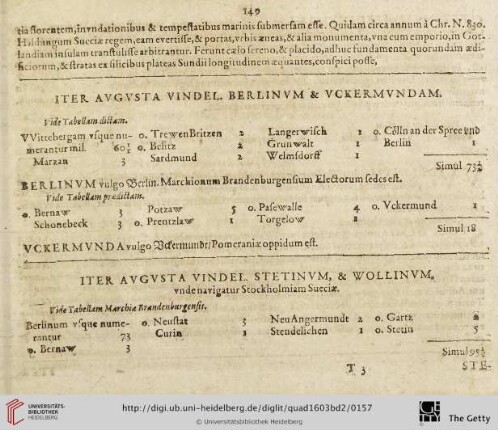 149
tia florentem, invndationibus & tempestatibus marinis submersam esse. Quidam circa annum à Chr. N. 830.
Haldingum Sueciæ regem, eam evertisse, & portas, vrbis æneas, & alia monumenta, vna cum emporio, in Got-
landiam insulam transtulisse arbitrantur. Ferunt cælo sereno, & placido, adhuc fundamenta quorundam ædi-
ficiorum, & stratas ex silicibus plateas Sundii longitudinem æquantes, conspici posse,
ITER AVGVSTA VINDEL. BERLINVM & VCKERMVNDAM.
Vide Tabellam dictam.
VVittebergam vsque nu- o. TrewenBritzen 2 Langerwisch 1 o. Cölln an der Spree vnd
merantur mil. 60½ o. Belitz 2 Grunwalt 1 Berlin 1
Marzan 3 Sardmund 2 Welmsdorff 1
Simul 73½
BERLINVM vulgo Berlin. Marchionum Brandenburgensium Electorum sedes est.
Vide Tabellam prædictam.
o. Bernaw 3 Potzaw 5 o. Pasewalle 4 o. Vckermund 1
Schonebeck 3 o. Prentzlaw 1 Torgelow
Simul 18
VCKERMVNDA vulgo Vckermundt/ Pomeraniæ oppidum est.
ITER AVGVSTA VINDEL. STETINVM, & WOLLINVM,
vnde navigatur Stockholmiam Sueciæ.
Vide Tabellam Marchiæ Brandenburgensis.
Berlinum vsque nume- o. Neustat 3 NeuAngermundt 2 o. Gartz
rantur 73 Curin 1 Stendelichen 1 o. Stetin 5
o. Bernaw 3
Simul 95½
T 3 STE-
UNIVERSITÄTS-
BIBLIOTHEK
HEIDELBERG
http://digi.ub.uni-heidelberg.de/diglit/quad1603bd2/0157
© Universitätsbibliothek Heidelberg
The Getty